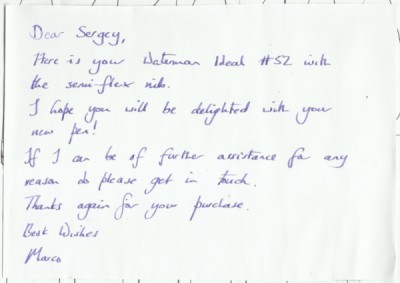 Dear Sergey,
Here is your Waterman Ideal #52 with
the semi-flex nib.
I hope you will be delighted with your
new pen!
If I can be of further assistance for any
reason do please get in touch.
Thanks again for your purchase.
Best Wishes
Marco